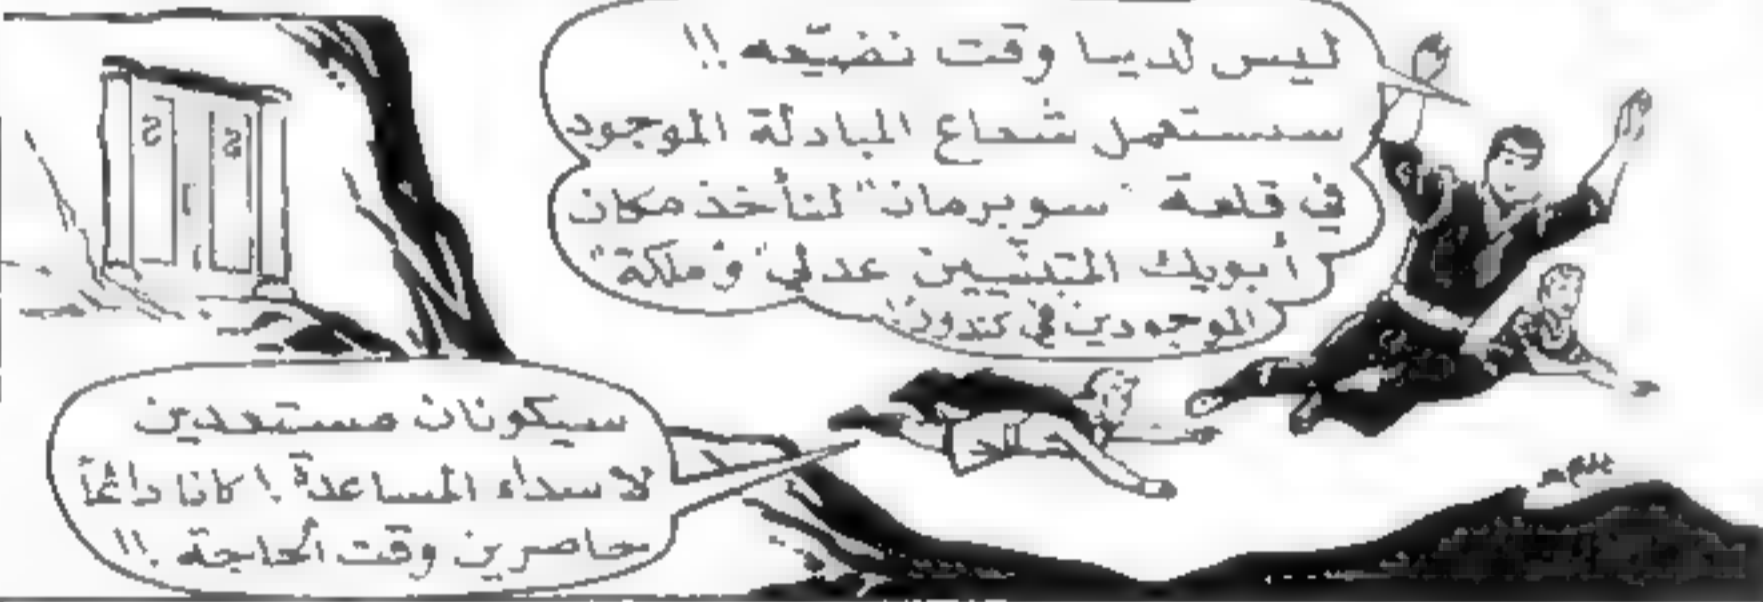 ليس لدينا وقت نضيّعه !!
سنستعمل شعاع المبادلة الموجود
في قلعة "سوبرمان" لنأخذ مكان
أبويك المتبنّيين عدلي وملكة"
الموجودين في كندور!
سيكونان مستعدين
لاسداء المساعدة ! كانا دائماً
حاضرين وقت الحاجة !!
S S